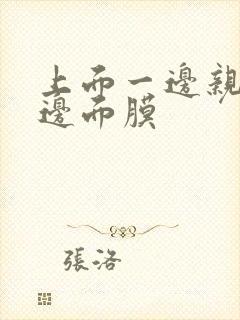 上面一邊親
邊面膜
張洛